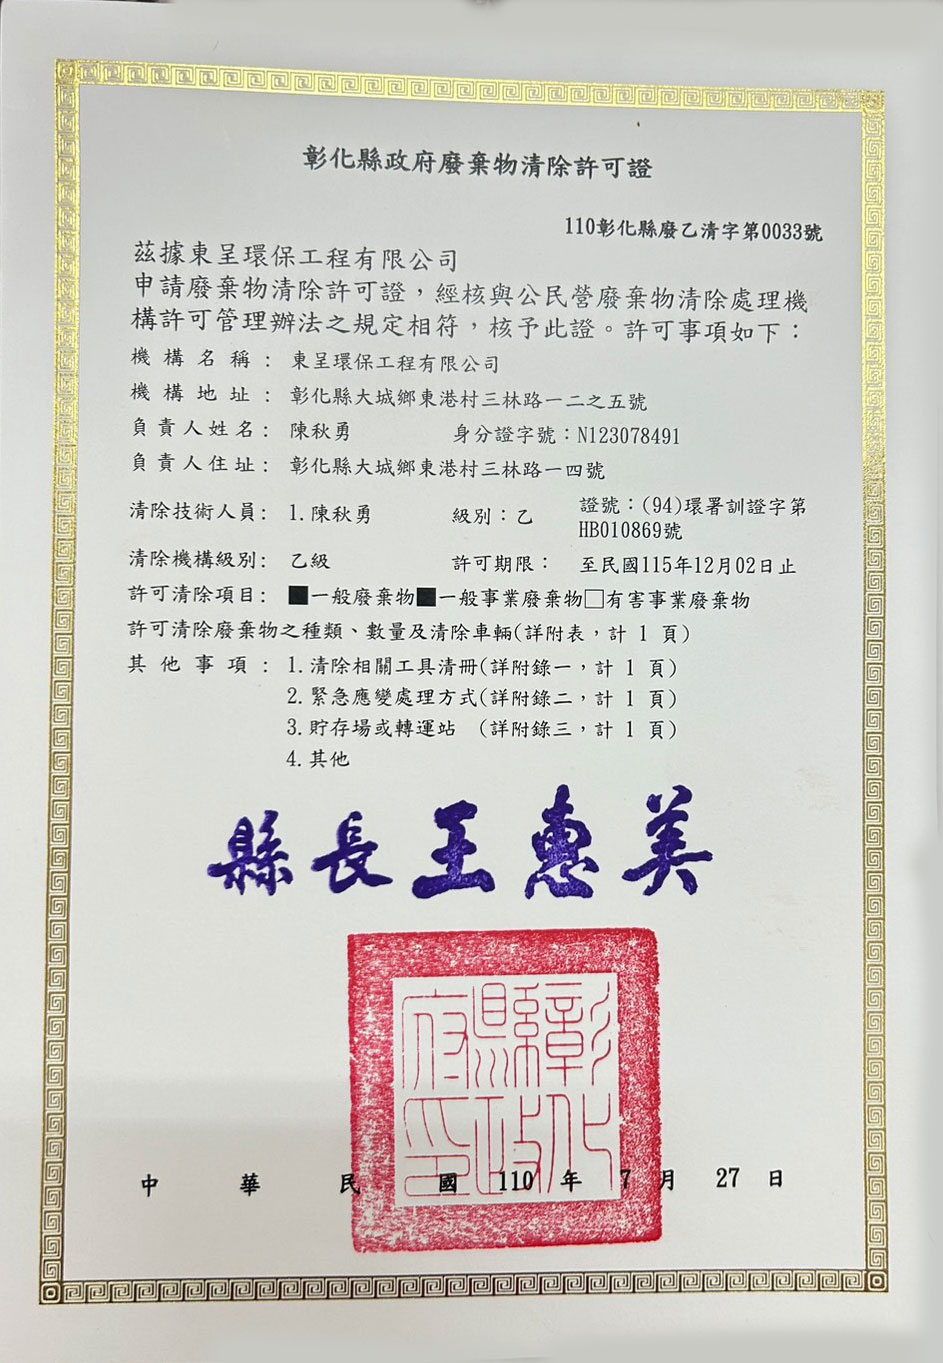 彰化縣政府廢棄物清除許可證
110彰化縣廢乙清字第0033號
茲據東呈環保工程有限公司
申請廢棄物清除許可證，經核與公民營廢棄物清除處理機
構許可管理辦法之規定相符，核予此證。許可事項如下：
機構名稱： 東呈環保工程有限公司
機構地址： 彰化縣大城鄉東港村三林路一二之五號
負責人姓名： 陳秋勇 身分證字號：N123078491
負責人住址： 彰化縣大城鄉東港村三林路一四號
清除技術人員： 1.陳秋勇 級別：乙 證號：(94)環署訓證字第
HB010869號
清除機構級別： 乙級 許可期限： 至民國115年12月02日止
許可清除項目： ■一般廢棄物■一般事業廢棄物□有害事業廢棄物
許可清除廢棄物之種類、數量及清除車輛(詳附表，計 1 頁)
其他事項： 1.清除相關工具清冊(詳附錄一，計 1 頁)
2.緊急應變處理方式(詳附錄二，計 1 頁)
3.貯存場或轉運站 (詳附錄三，計 1 頁)
4.其他
縣長王惠美
彰化縣政府印
中華民國 110 年 7 月 27 日